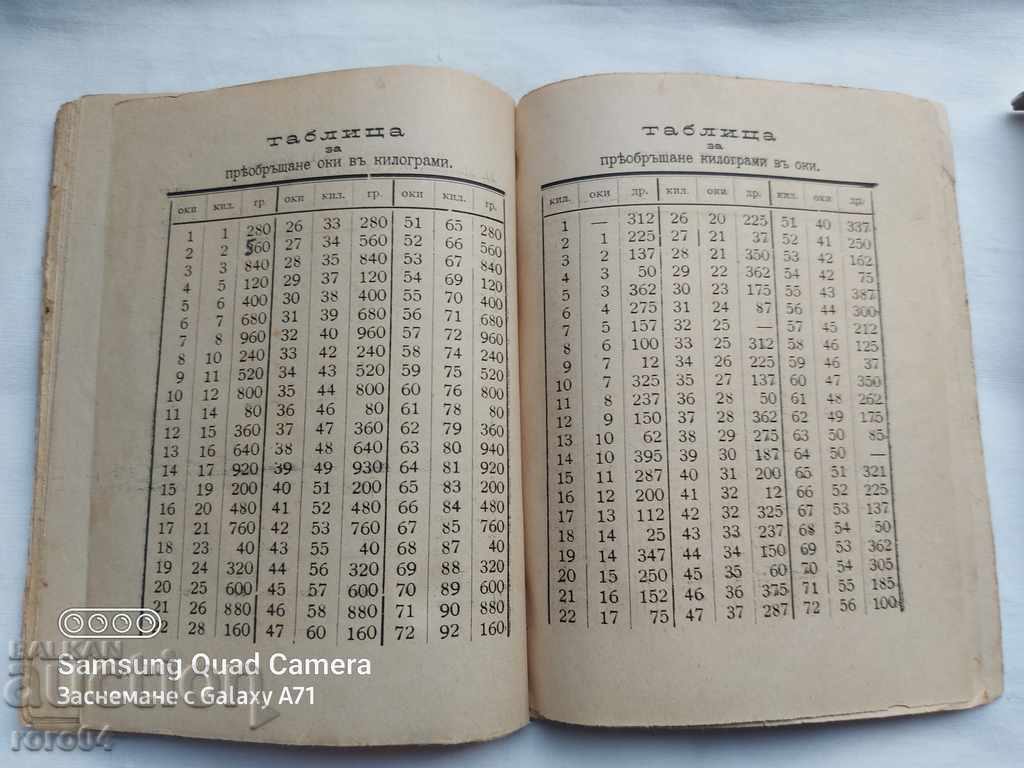 таблица
за
прѣобръщане оки въ килограми.
оки кил. гр. оки кил. гр. оки кил. гр.
1 1 280 26 33 280 51 65 280
2 2 560 27 34 560 52 66 560
3 3 840 28 35 840 53 67 840
4 5 120 29 37 120 54 69 120
5 6 400 30 38 400 55 70 400
6 7 680 31 39 680 56 71 680
7 8 960 32 40 960 57 72 960
8 10 240 33 42 240 58 74 240
9 11 520 34 43 520 59 75 520
10 12 800 35 44 800 60 76 800
11 14 80 36 46 80 61 78 80
12 15 360 37 47 360 62 79 360
13 16 640 38 48 640 63 80 940
14 17 920 39 49 930 64 81 920
15 19 200 40 51 200 65 83 200
16 20 480 41 52 480 66 84 480
17 21 760 42 53 760 67 85 760
18 23 40 43 55 40 68 87 40
19 24 320 44 56 320 69 88 320
20 25 600 45 57 600 70 89 600
21 26 880 46 58 880 71 90 880
2 28 160 47 60 160 72 92 160
таблица
за
прѣобръщане килограми въ оки.
кил. оки др. кил. оки др. кил. оки др.
1 — 312 26 20 225 51 40 337
2 1 225 27 21 37 52 41 250
3 2 137 28 21 350 53 42 162
4 3 50 29 22 362 54 42 75
5 3 362 30 23 175 55 43 387
6 4 275 31 24 87 56 44 300
7 5 157 32 25 — 57 45 212
8 6 100 33 25 312 58 46 125
9 7 12 34 26 225 59 46 37
10 7 325 35 27 137 60 47 350
11 8 237 36 28 50 61 48 262
12 9 150 37 28 362 62 49 175
13 10 62 38 29 275 63 50 85
14 10 395 39 30 187 64 50 —
15 11 287 40 31 200 65 51 321
16 12 200 41 32 12 66 52 225
17 13 112 42 32 325 67 53 137
18 14 25 43 33 237 68 54 50
19 14 347 44 34 150 69 53 362
20 15 250 45 35 60 70 54 305
21 16 152 46 36 375 71 55 185
22 17 75 47 37 287 72 56 100
BALKAN
auction
Samsung Quad Camera
Заснемане с Galaxy A71
roro04